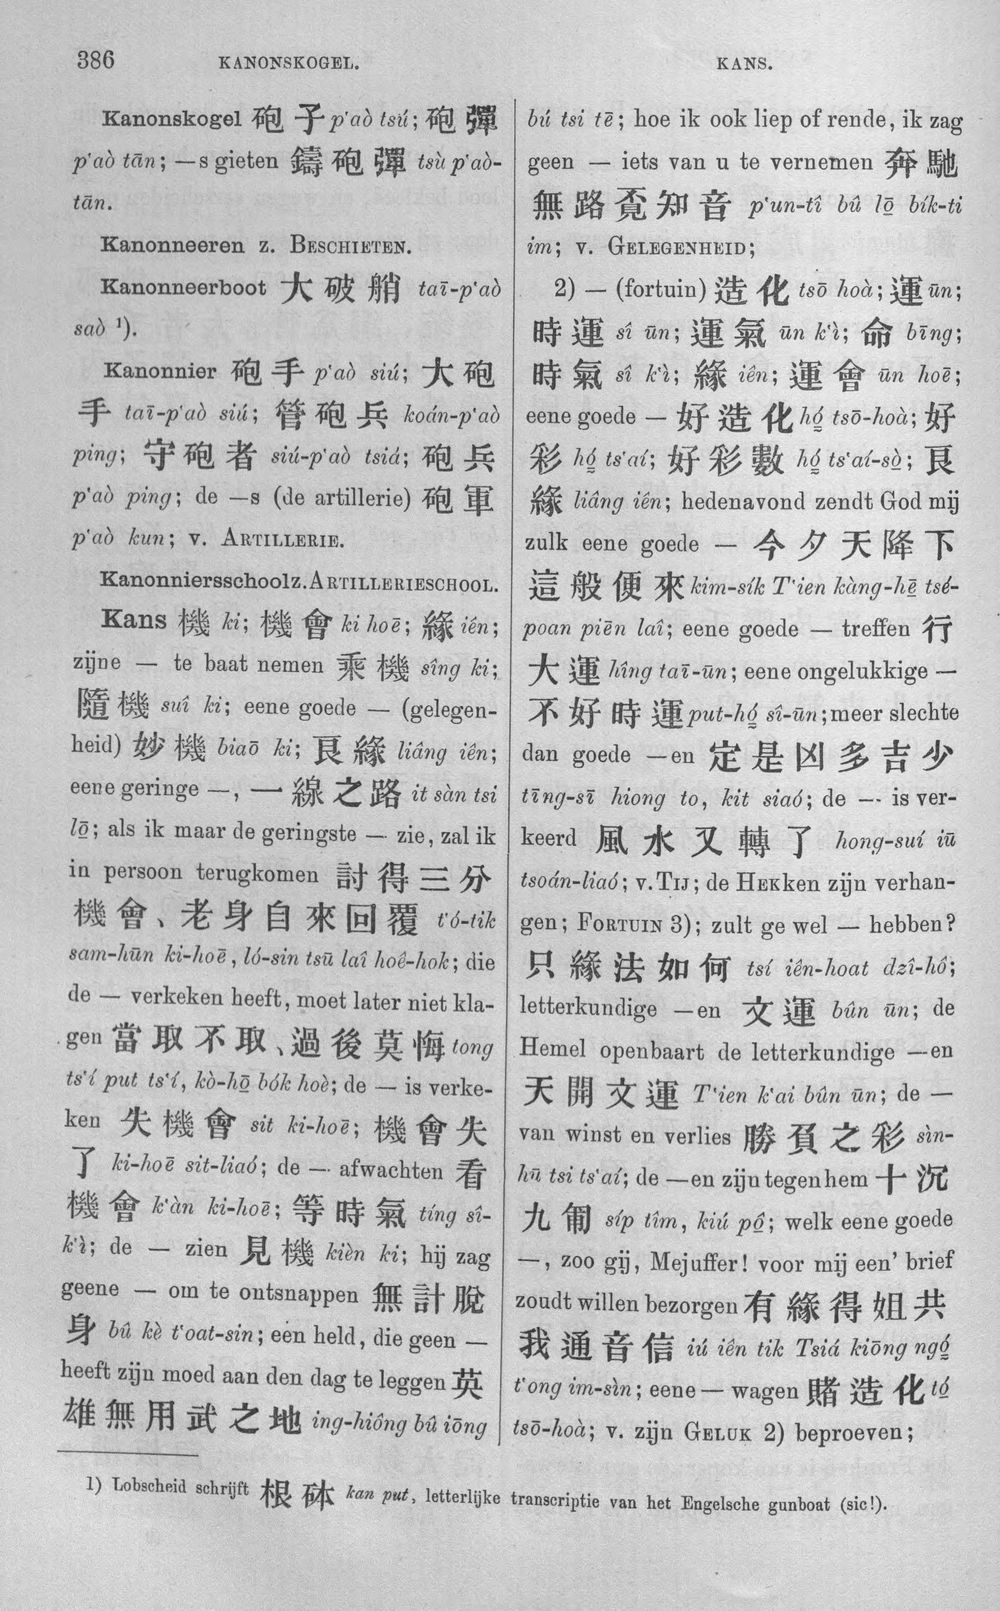 386
KANONSKOGEL.
KANS.
Kanonskogel 砲子 p'aò tsú; 砲彈
p'aò tān; —s gieten 鑄砲彈 tsù p'aò-
tān.
Kanonneeren z. BESCHIETEN.
Kanonneerboot 大破艄 taī-p'aò
saò ¹).
Kanonnier 砲手 p'aò siú; 大砲
手 taī-p'aò siú; 管砲兵 koán-p'aò
ping; 守砲者 siú-p'aò tsiá; 砲兵
p'aò ping; de —s (de artillerie) 砲軍
p'aò kun; v. ARTILLERIE.
Kanonniersschool z. ARTILLERIESCHOOL.
Kans 機 ki; 機會 ki hoē; 緣 iên;
zijne — te baat nemen 乘機 sîng ki;
隨機 suî ki; eene goede — (gelegen-
heid) 妙機 biaō ki; 良緣 liâng iên;
eene geringe —, 一線之路 it sàn tsi
lō̤; als ik maar de geringste — zie, zal ik
in persoon terugkomen 討得三分
機會、老身自來回覆 t'ó-tik
sam-hūn ki-hoē, ló-sin tsū laî hoê-hok; die
de — verkeken heeft, moet later niet kla-
gen 當取不取、過後莫悔 tong
ts'í put ts'í, kò-hō̤ bók hoè; de — is verke-
ken 失機會 sit ki-hoē; 機會失
了 ki-hoē sit-liaó; de — afwachten 看
機會 k'àn ki-hoē; 等時氣 tíng sî-
k'ì; de — zien 見機 kièn ki; hij zag
geene — om te ontsnappen 無計脫
身 bû kè t'oat-sin; een held, die geen —
heeft zijn moed aan den dag te leggen 英
雄無用武之地 ing-hiông bû iōng
bú tsi tē; hoe ik ook liep of rende, ik zag
geen — iets van u te vernemen 奔馳
無路覔知音 p'un-tî bû lō̤ bík-ti
im; v. GELEGENHEID;
2) — (fortuin) 造化 tsō hoà; 運 ūn;
時運 sî ūn; 運氣 ūn k'ì; 命 bīng;
時氣 sî k'ì; 緣 iên; 運會 ūn hoē;
eene goede — 好造化 hó̤ tsō-hoà; 好
彩 hó̤ ts'aí; 好彩數 hó̤ ts'aí-sò̤; 良
緣 liâng iên; hedenavond zendt God mij
zulk eene goede — 今夕天降下
這般便來 kim-sík T'ien kàng-hē̤ tsé-
poan piēn laî; eene goede — treffen 行
大運 hîng taī-ūn; eene ongelukkige —
不好時運 put-hó̤ sî-ūn; meer slechte
dan goede —en 定是凶多吉少
tīng-sī hiong to, kit siaó; de — is ver-
keerd 風水又轉了 hong-suí iū
tsoán-liaó; v. TIJ; de HEKken zijn verhan-
gen; FORTUIN 3); zult ge wel — hebben?
只緣法如何 tsí iên-hoat dzî-hô;
letterkundige —en 文運 bûn ūn; de
Hemel openbaart de letterkundige —en
天開文運 T'ien k'ai bûn ūn; de —
van winst en verlies 勝負之彩 sìn-
hū tsi ts'aí; de —en zijn tegen hem 十沉
九 síp tîm, kiú pô̤; welk eene goede
—, zoo gij, Mejuffer! voor mij een' brief
zoudt willen bezorgen 有緣得姐共
我通音信 iú iên tik Tsiá kiōng ngó̤
t'ong im-sìn; eene — wagen 賭造化 tó̤
tsō-hoà; v. zijn GELUK 2) beproeven;
1) Lobscheid schrijft 根砵 kan put, letterlijke transcriptie van het Engelsche gunboat (sic!).